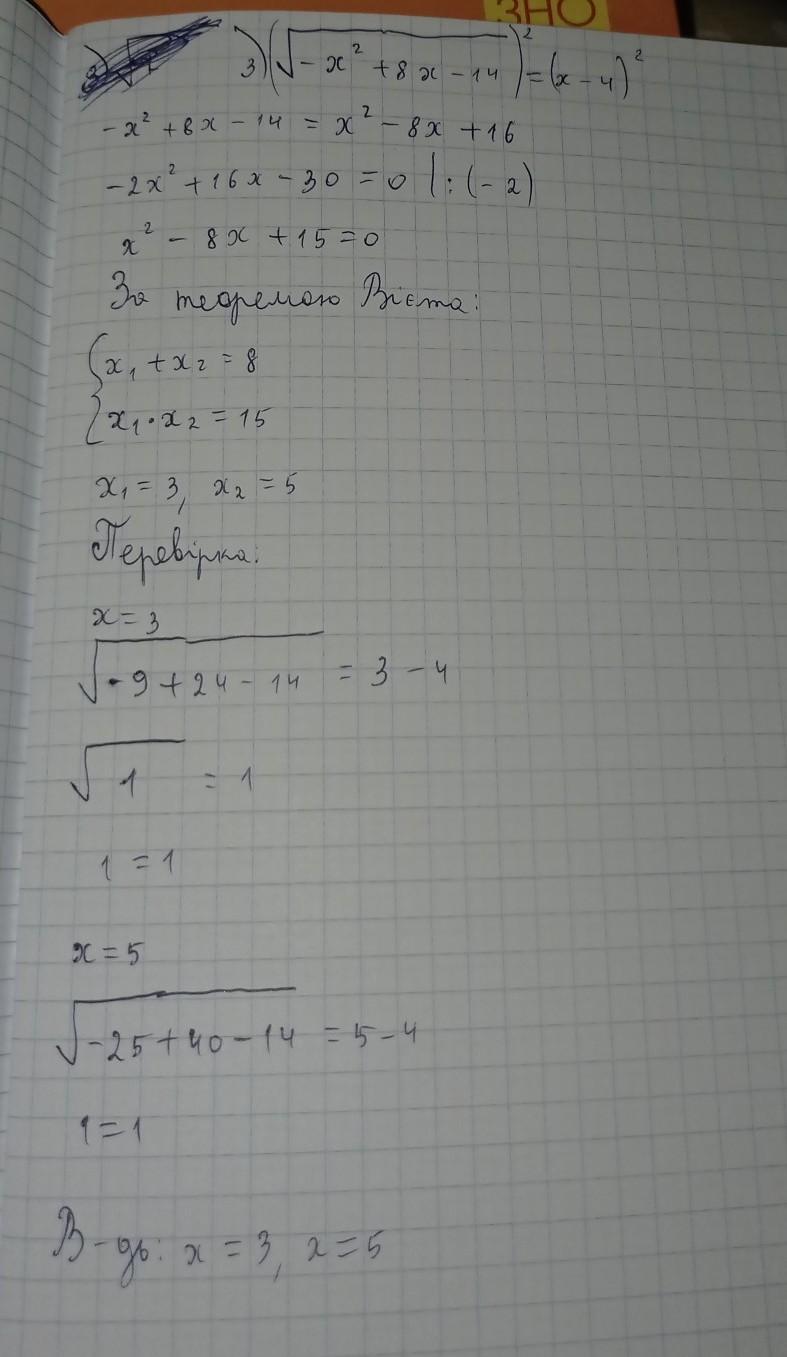 ЗНО
3) (√(-x² + 8x - 14))² = (x - 4)²
-x² + 8x - 14 = x² - 8x + 16
-2x² + 16x - 30 = 0 | : (-2)
x² - 8x + 15 = 0
За теоремою Вієта:
{ x₁ + x₂ = 8
x₁ · x₂ = 15
x₁ = 3, x₂ = 5
Перевірка:
x = 3
√(-9 + 24 - 14) = 3 - 4
√1 = 1
1 = 1
x = 5
√(-25 + 40 - 14) = 5 - 4
1 = 1
В-дь: x = 3, x = 5